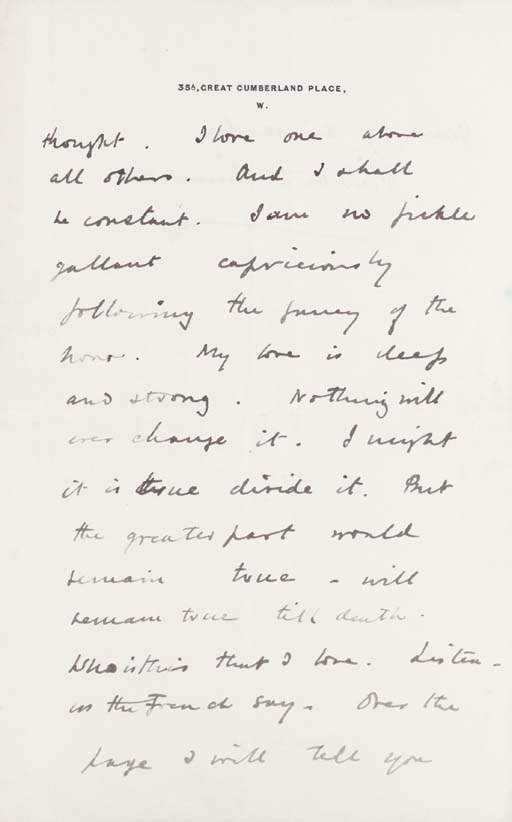 35A, GREAT CUMBERLAND PLACE,
W.
thought. I love one above
all others. And I shall
be constant. I am no fickle
gallant capriciously
following the fancy of the
hour. My love is deep
and strong. Nothing will
ever change it. I might
it is true divide it. But
the greater part would
remain true - will
remain true till death.
Who is this that I love. Listen -
as the French say. Over the
page I will tell you